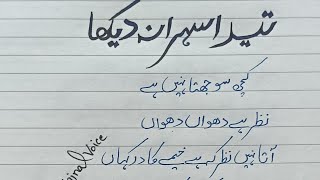 تیرا سہرا نہ دیکھا
کچھ سوجھتا نہیں ہے
نظر ہے دھواں دھواں
آتا نہیں نظر کہ ہے خیمے کا در کہاں
ginal Voice